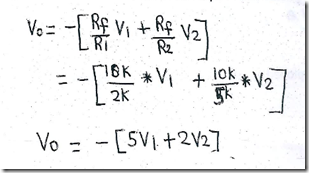 V₀ = -[Rf/R1 V₁ + Rf/R2 V₂]
= -[10K/2K * V₁ + 10K/5K * V₂]
V₀ = -[5V₁ + 2V₂]